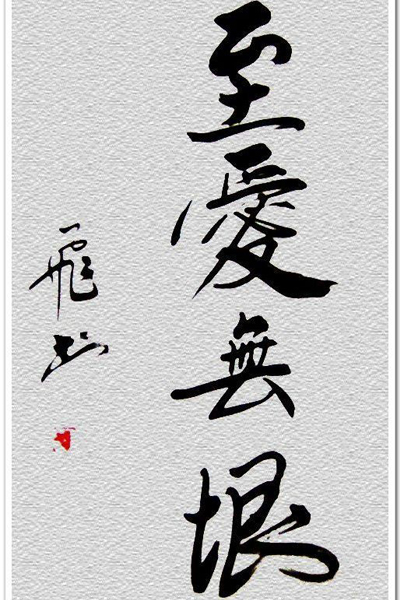 至愛無垠
飛